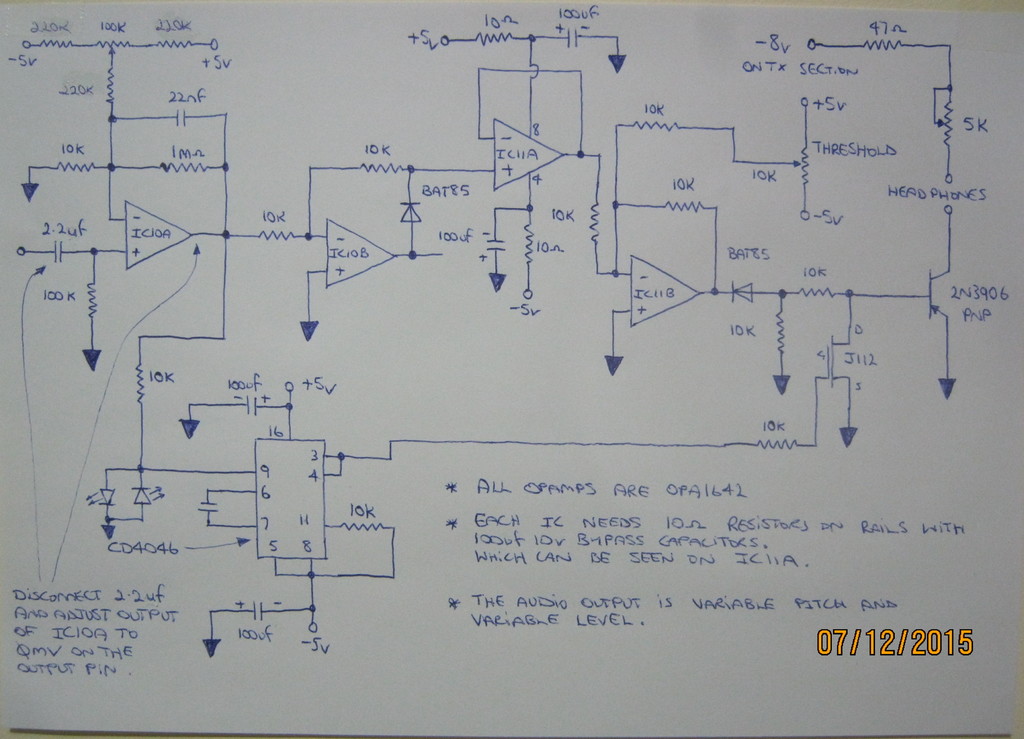 220K 100K 220K
-5V +5V
220K
22nF
10K 1MΩ
2.2uF
- IC10A +
100K
10K
10K
- IC10B +
BAT85
+5V 10Ω 100uF
+ -
8
- IC11A +
4
100uF
- +
10Ω
-5V
10K
10K
10K
- IC11B +
BAT85
10K
10K
-8V 47Ω
ON TX SECTION
+5V
THRESHOLD
10K
-5V
5K
HEADPHONES
2N3906
PNP
D
G J112
S
10K
10K
100uF +5V
- +
16
9 3
6 4
7 11
5 8
10K
CD4046
+ -
100uF
-5V
DISCONNECT 2.2uF
AND ADJUST OUTPUT
OF IC10A TO
0MV ON THE
OUTPUT PIN.
* ALL OPAMPS ARE OPA1642
* EACH IC NEEDS 10Ω RESISTORS ON RAILS WITH
100uF 10V BYPASS CAPACITORS.
WHICH CAN BE SEEN ON IC11A.
* THE AUDIO OUTPUT IS VARIABLE PITCH AND
VARIABLE LEVEL.
07/12/2015